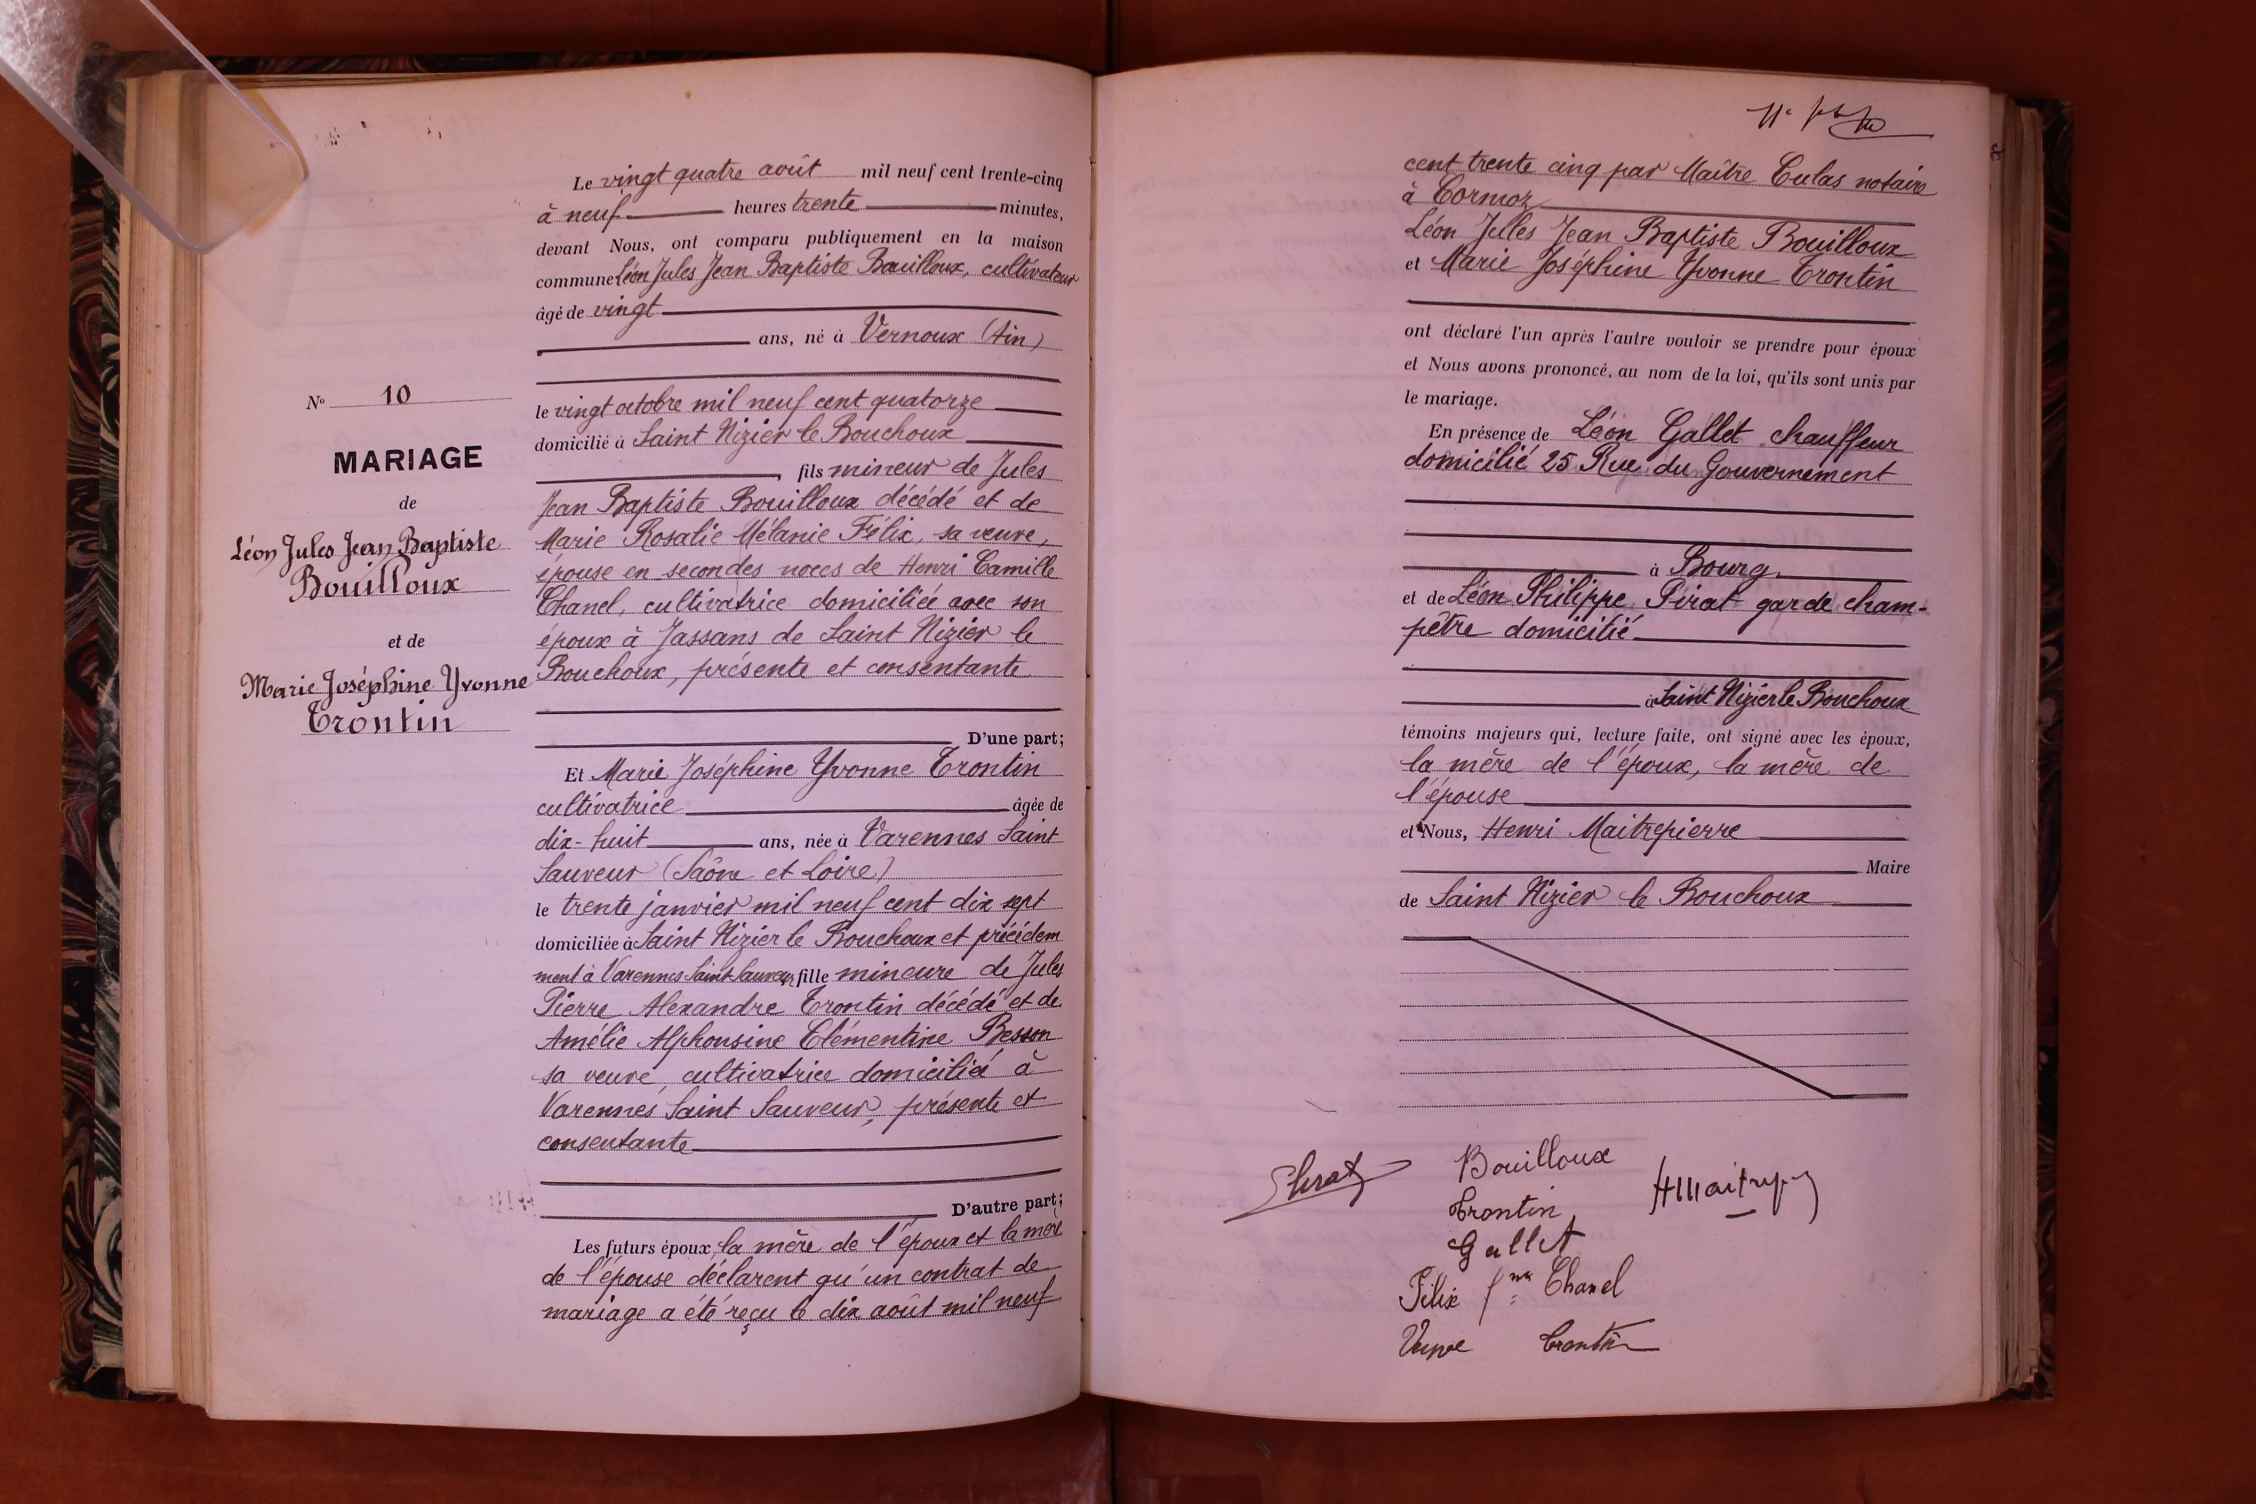 N° 10
MARIAGE
de
Léon Jules Jean Baptiste
Bouilloux
et de
Marie Joséphine Yvonne
Trontin
Le vingt quatre août mil neuf cent trente-cinq
à neuf heures trente minutes,
devant Nous, ont comparu publiquement en la maison
commune Léon Jules Jean Baptiste Bouilloux, cultivateur
âgé de vingt
ans, né à Vernoux (Ain)
le vingt octobre mil neuf cent quatorze
domicilié à Saint Nizier le Bouchoux
fils mineur de Jules
Jean Baptiste Bouilloux décédé et de
Marie Rosalie Mélanie Félix, sa veuve,
épouse en secondes noces de Henri Camille
Chanel, cultivatrice domiciliée avec son
époux à Jassans de Saint Nizier le
Bouchoux, présente et consentante
D'une part;
Et Marie Joséphine Yvonne Trontin
cultivatrice âgée de
dix-huit ans, née à Varennes Saint
Sauveur (Saône et Loire)
le trente janvier mil neuf cent dix sept
domiciliée à Saint Nizier le Bouchoux et précédem
ment à Varennes Saint Sauveur, fille mineure de Jules
Pierre Alexandre Trontin décédé et de
Amélie Alphonsine Clémentine Besson
sa veuve, cultivatrice domiciliée à
Varennes Saint Sauveur, présente et
consentante
D'autre part;
Les futurs époux, la mère de l'époux et la mère
de l'épouse déclarent qu'un contrat de
mariage a été reçu le dix août mil neuf
cent trente cinq par Maître Culas notaire
à Cormoz
Léon Jules Jean Baptiste Bouilloux
et Marie Joséphine Yvonne Trontin
ont déclaré l'un après l'autre vouloir se prendre pour époux
et Nous avons prononcé, au nom de la loi, qu'ils sont unis par
le mariage.
En présence de Léon Gallet chauffeur
domicilié 25 Rue du Gouvernement
à Bourg.
et de Léon Philippe Pirat garde cham-
pêtre domicilié
à Saint Nizier le Bouchoux
témoins majeurs qui, lecture faite, ont signé avec les époux,
la mère de l'époux, la mère de
l'épouse
et Nous, Henri Maitrepierre
Maire
de Saint Nizier le Bouchoux
Bouilloux
Trontin
Gallet
Félix Chanel
Veuve Trontin